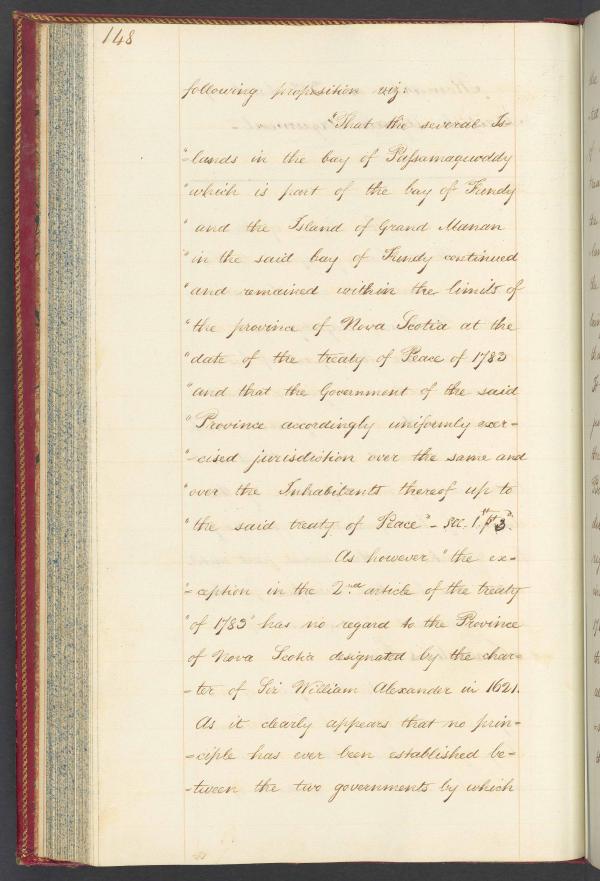 148
following proposition viz:
"That the several Is-
"-lands in the bay of Passamaquoddy
"which is part of the bay of Fundy
"and the Island of Grand Manan
"in the said bay of Fundy continued
"and remained within the limits of
"the province of Nova Scotia at the
"date of the treaty of Peace of 1783
"and that the Government of the said
"Province accordingly uniformly exer-
"-cised jurisdiction over the same and
"over the Inhabitants thereof up to
"the said treaty of Peace" - sec. 1st p 3d.
As however "the ex-
"-ception in the 2nd article of the treaty
"of 1783" has no regard to the Province
of Nova Scotia designated by the char-
-ter of Sir William Alexander in 1621.
As it clearly appears that no prin-
-ciple has ever been established be-
-tween the two governments by which